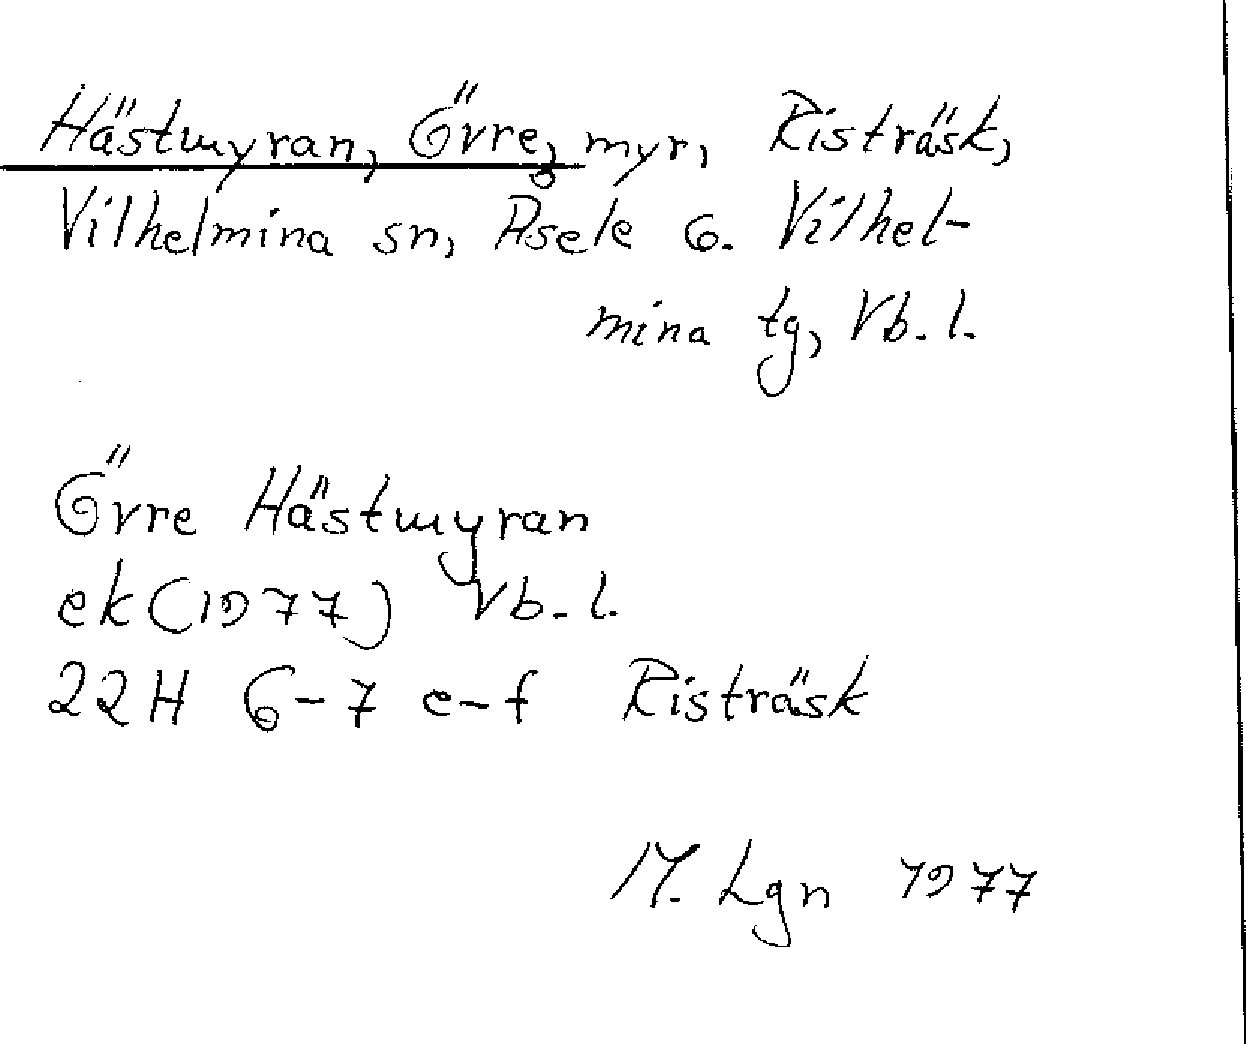 Hästmyran, Övre, myr, Risträsk,
Vilhelmina sn, Åsele 6. Vilhel-
mina tg, Vb. l.
Övre Hästmyran
ek (1977) Vb. l.
22H 6-7 e-f Risträsk
M. Lgn 1977